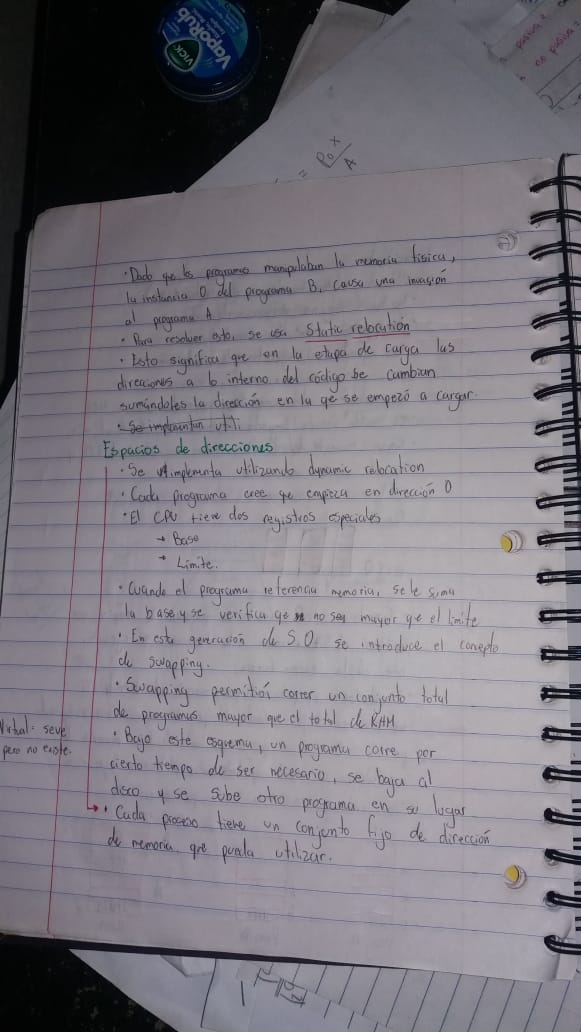 VICK
VapoRub
pasiva?
no pasiva
= Po x
A
· Dado qe los programas manipulaban la memoria física,
la instancia 0 del programa B, causa una invasión
al programa A
· Para resolver esto, se usa Static relocation
· Esto significa que en la etapa de carga las
direcciones a lo interno del código se cambian
sumándoles la dirección en la qe se empezó a cargar.
· Se implementan utili
Espacios de direcciones
· Se implementa utilizando dynamic relocation
· Cada programa cree qe empieza en dirección 0
· El CPU tiene dos registros especiales
→ Base
→ Límite.
· Cuando el programa referencia memoria, se le suma
la base y se verifica qe no sea mayor qe el límite
· En esta generación de S.O. se introduce el conepto
de swapping.
· Swapping permitió correr un conjunto total
de programas mayor que el total de RAM
Virtual: se ve
pero no existe.
· Bajo este esquema, un programa corre por
cierto tiempo de ser necesario, se baja al
disco y se sube otro programa en su lugar
→ · Cada proceso tiene un conjunto fijo de dirección
de memoria qre pueda utilizar.